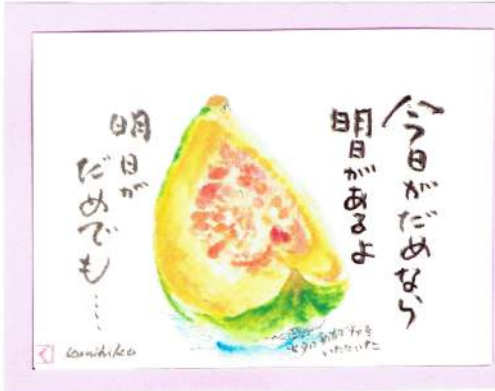 今日がだめなら
明日があるよ
明日が
だめでも・・・・
kunihiko